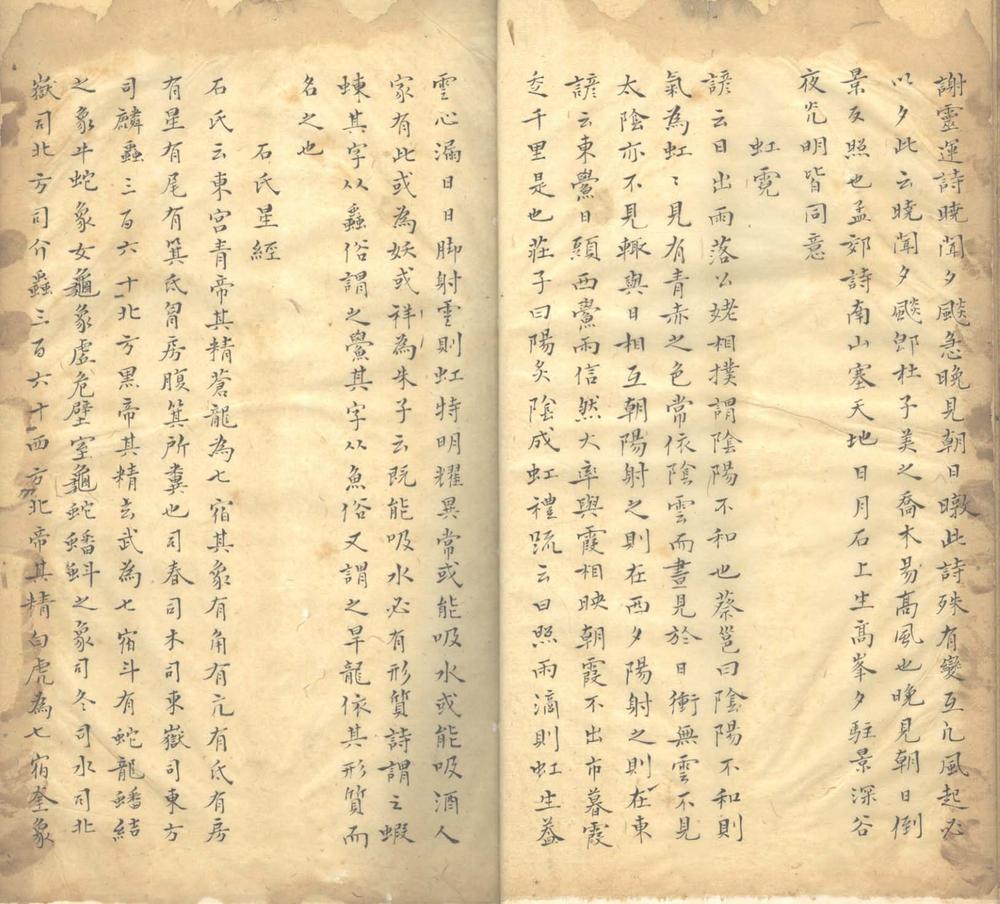 謝靈運詩曉聞夕飈急晚見朝日暾此詩殊有變互凡風起必
以夕此云曉聞夕飈即杜子美之喬木易髙風也晚見朝日倒
景反照也孟郊詩南山塞天地日月石上生髙峯夕駐景深谷
夜光明皆同意
虹霓
諺云日出雨落公姥相撲謂陰陽不和也蔡邕曰陰陽不和則
氣為虹〻見有青赤之色常依陰雲而晝見於日衝無雲不見
太陰亦不見輙與日相互朝陽射之則在西夕陽射之則在東
諺云東鱟日頭西鱟雨信然大率與霞相映朝霞不出市暮霞
走千里是也莊子曰陽炙陰成虹禮䟽云日照雨滴則虹生葢
雲心漏日日脚射雲則虹特明耀異常或能吸水或能吸酒人
家有此或為妖或祥為朱子云既能吸水必有形質詩謂之蝃
蝀其字从蟲俗謂之鱟其字从魚俗又謂之旱龍依其形質而
名之也
石氏星經
石氏云東宮青帝其精蒼龍為七宿其象有角有亢有氐有房
有星有尾有箕氐胷房腹箕所糞也司春司木司東嶽司東方
司麟蟲三百六十北方黒帝其精玄武為七宿斗有蛇龍蟠結
之象牛蛇象女龜象虚危壁室龜蛇蟠蚪之象司冬司水司北
嶽司北方司介蟲三百六十西方北帝其精白虎為七宿奎象